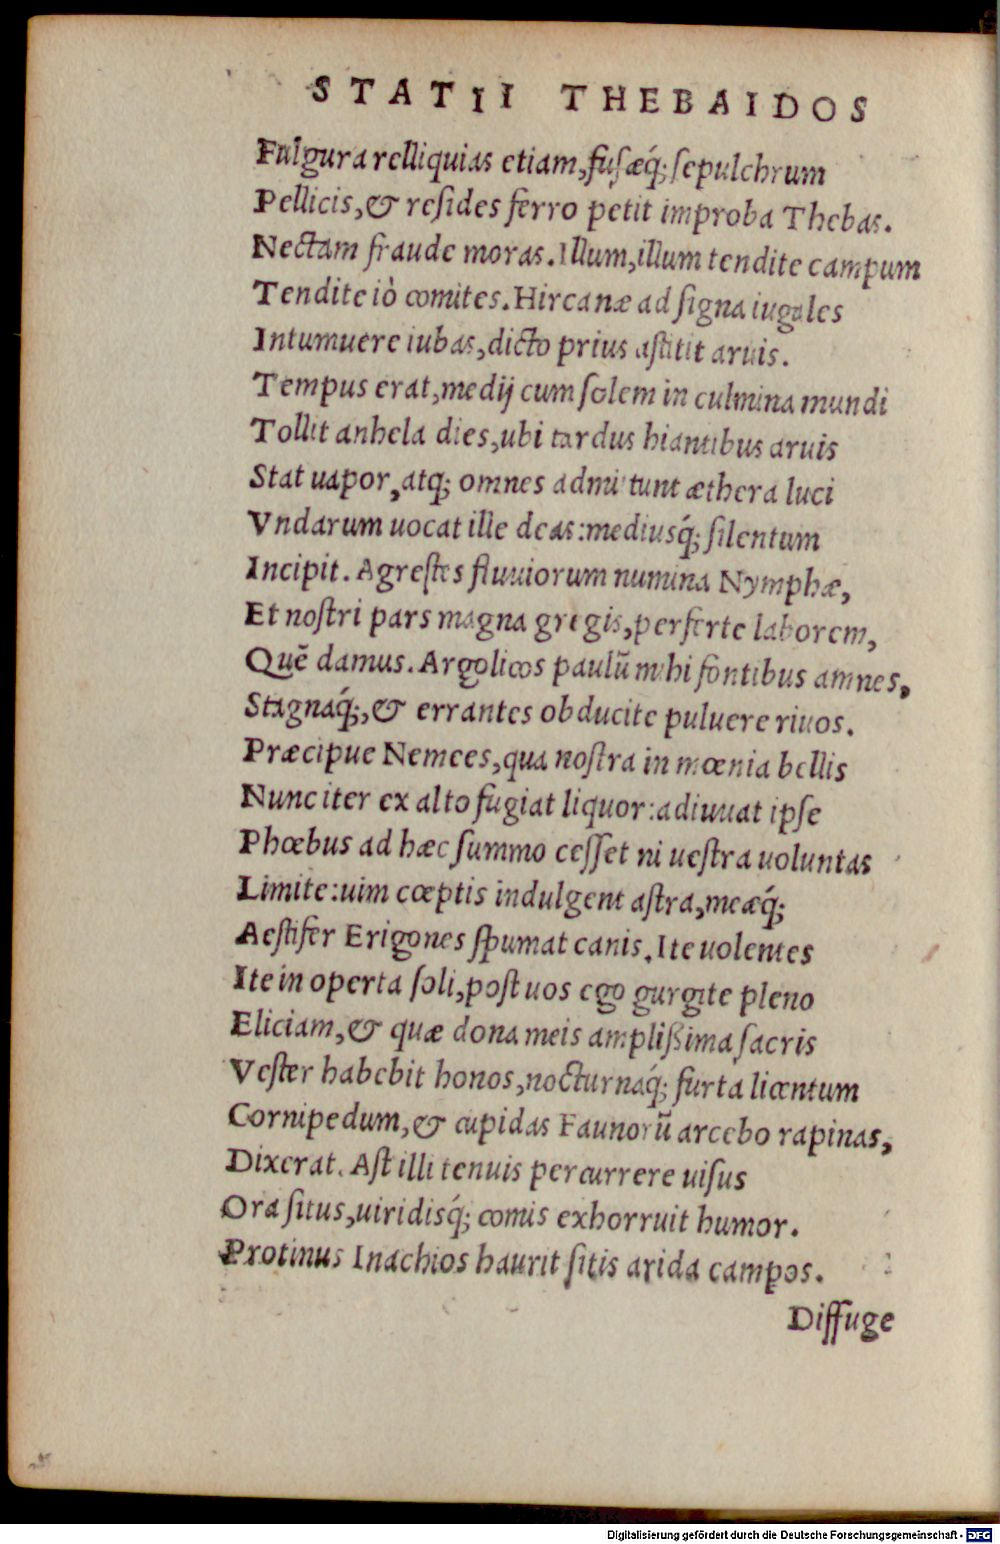 STATII THEBAIDOS
Fulgura relliquias etiam,fusæq́; sepulchrum
Pellicis,& resides ferro petit improba Thebas.
Nectam fraude moras. Illum,illum tendite campum
Tendite iò comites. Hircanæ ad signa iugales
Intumuere iubas,dicto prius astitit aruis.
Tempus erat,medij cum solem in culmina mundi
Tollit anhela dies,ubi tardus hiantibus aruis
Stat uapor,atq; omnes admittunt æthera luci
Vndarum uocat ille deas:mediusq́; silentum
Incipit. Agrestes fluuiorum numina Nymphæ,
Et nostri pars magna gregis,perferte laborem,
Quē damus. Argolicos paulū mihi fontibus amnes,
Stagnaq́;,& errantes obducite puluere riuos.
Præcipue Nemees,qua nostra in mœnia bellis
Nunc iter ex alto fugiat liquor:adiuuat ipse
Phœbus ad hæc summo cesset ni uestra uoluntas
Limite:uim cœptis indulgent astra,meæq́;
Aestifer Erigones spumat canis. Ite uolentes
Ite in operta soli,post uos ego gurgite pleno
Eliciam,& quæ dona meis amplißima sacris
Vester habebit honos,nocturnaq́; furta licentum
Cornipedum,& cupidas Faunorū arcebo rapinas,
Dixerat. Ast illi tenuis percurrere uisus
Ora situs,uiridisq́; comis exhorruit humor.
Protinus Inachios haurit sitis arida campos.
Diffuge
Digitalisierung gefördert durch die Deutsche Forschungsgemeinschaft - DFG